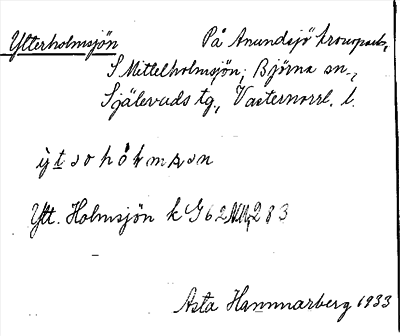 Ytterholmsjön På Anundsjö kronopark,
S Mittelholmsjön; Björna sn.,
Själevads tg., Västernorrl. l.
Ytt. Holmsjön k G 62 283
Asta Hammarberg 1933